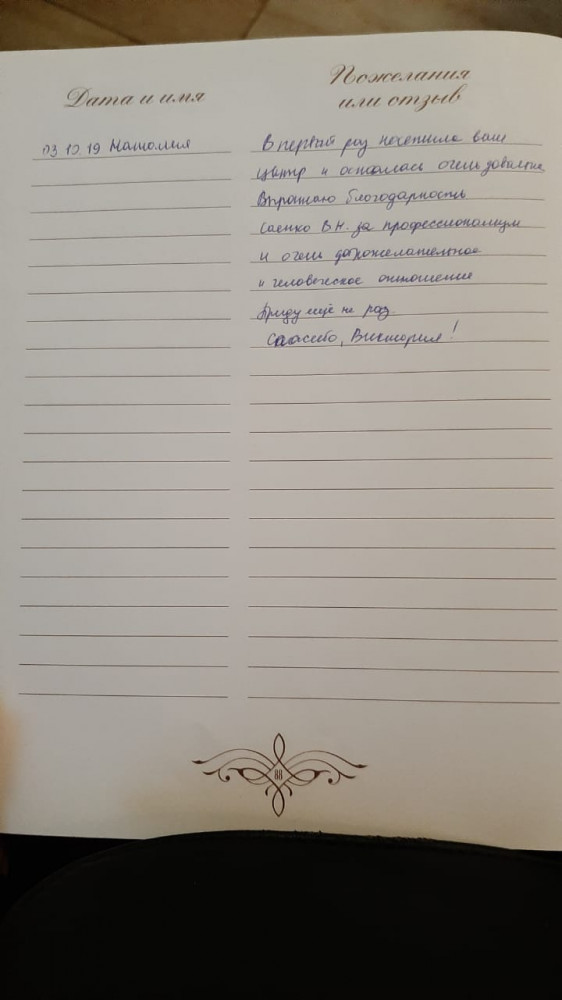 Дата и имя
Пожелания
или отзыв
03.10.19 Наталия
В первый раз посетила ваш
центр и осталась очень довольна
Выражаю благодарность
Саенко В.Н. за профессионализм
и очень доброжелательное
и человеческое отношение
Приду ещё не раз.
Спасибо, Виктория!
88